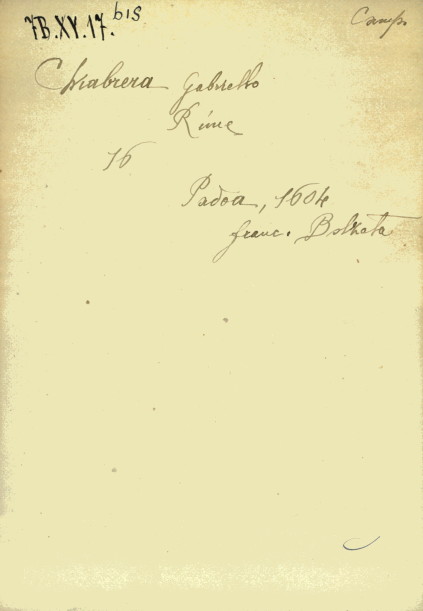 7B.XV.17.bis
Camp.
Chiabrera Gabriello
Rime
16
Padoa, 1604
franc. Bolzata